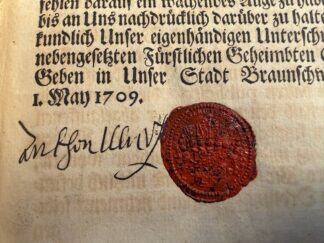 fehlen darauf ein wachendes Auge zu hab
bis an Uns nachdrücklich darüber zu halte
kundlich Unser eigenhändigen Unterschr
nebengesetzten Fürstlichen Geheimbten C
Geben in Unser Stadt Braunschw
1. May 1709.